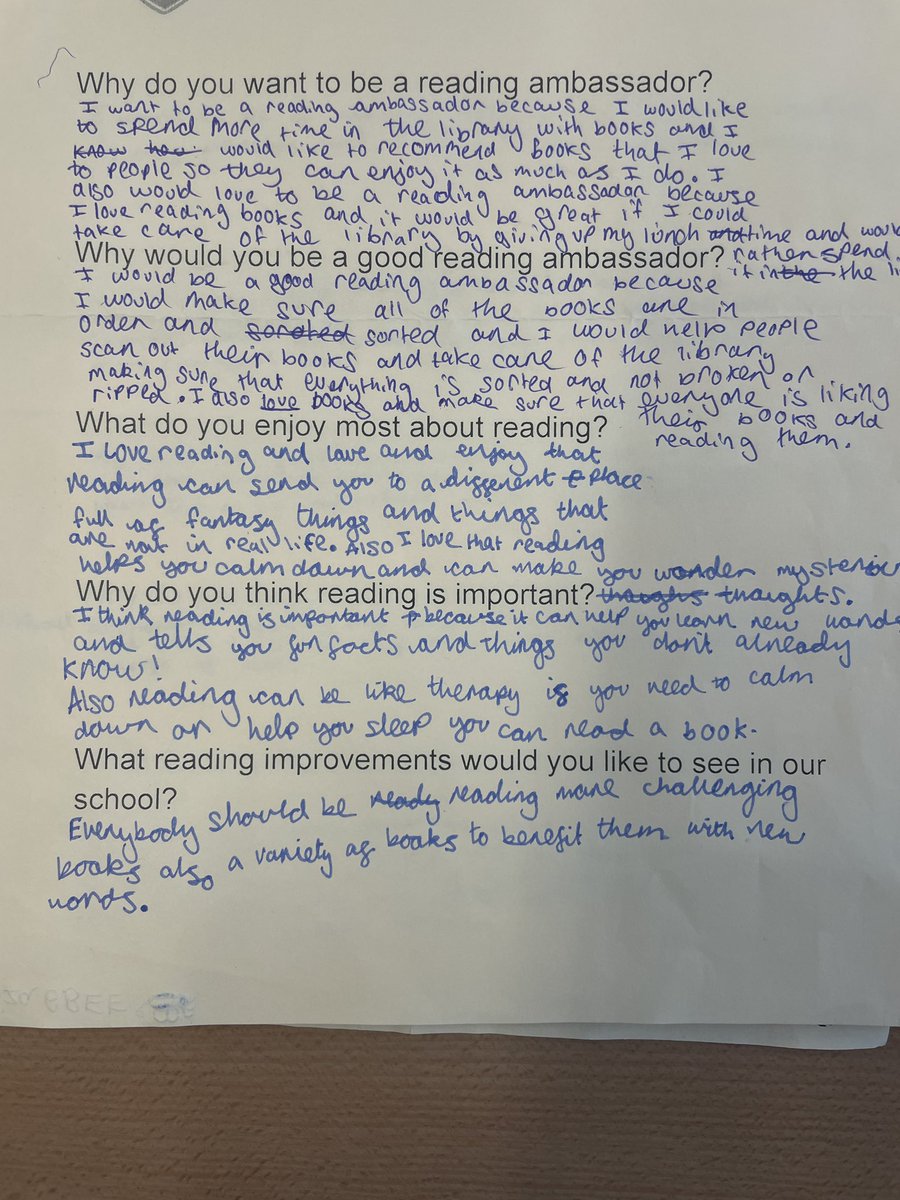 Why do you want to be a reading ambassador?
I want to be a reading ambassador because I would like
to spend more time in the library with books and I
know how would like to recommend books that I love
to people so they can enjoy it as much as I do. I
also would love to be a reading ambassador because
I love reading books and it would be great if I could
take care of the library by giving up my lunch and time and would
rather spend
it in the the li
Why would you be a good reading ambassador?
I would be a good reading ambassador because
I would make sure all of the books are in
order and sorated sorted and I would help people
scan out their books and take care of the library
making sure that everything is sorted and not broken or
ripped. I also love books and make sure that everyone is liking
their books and
reading them.
What do you enjoy most about reading?
I love reading and love and enjoy that
reading can send you to a different place
full of fantasy things and things that
are not in real life. Also I love that reading
helps you calm down and can make you wonder mysteriou
thoughs thoughts.
Why do you think reading is important?
I think reading is important because it can help you learn new words
and tells you fun facts and things you don't already
know!
Also reading can be like therapy if you need to calm
down or help you sleep you can read a book.
What reading improvements would you like to see in our
school?
Everybody should be ready reading more challenging
books also a variety of books to benefit them with new
words.